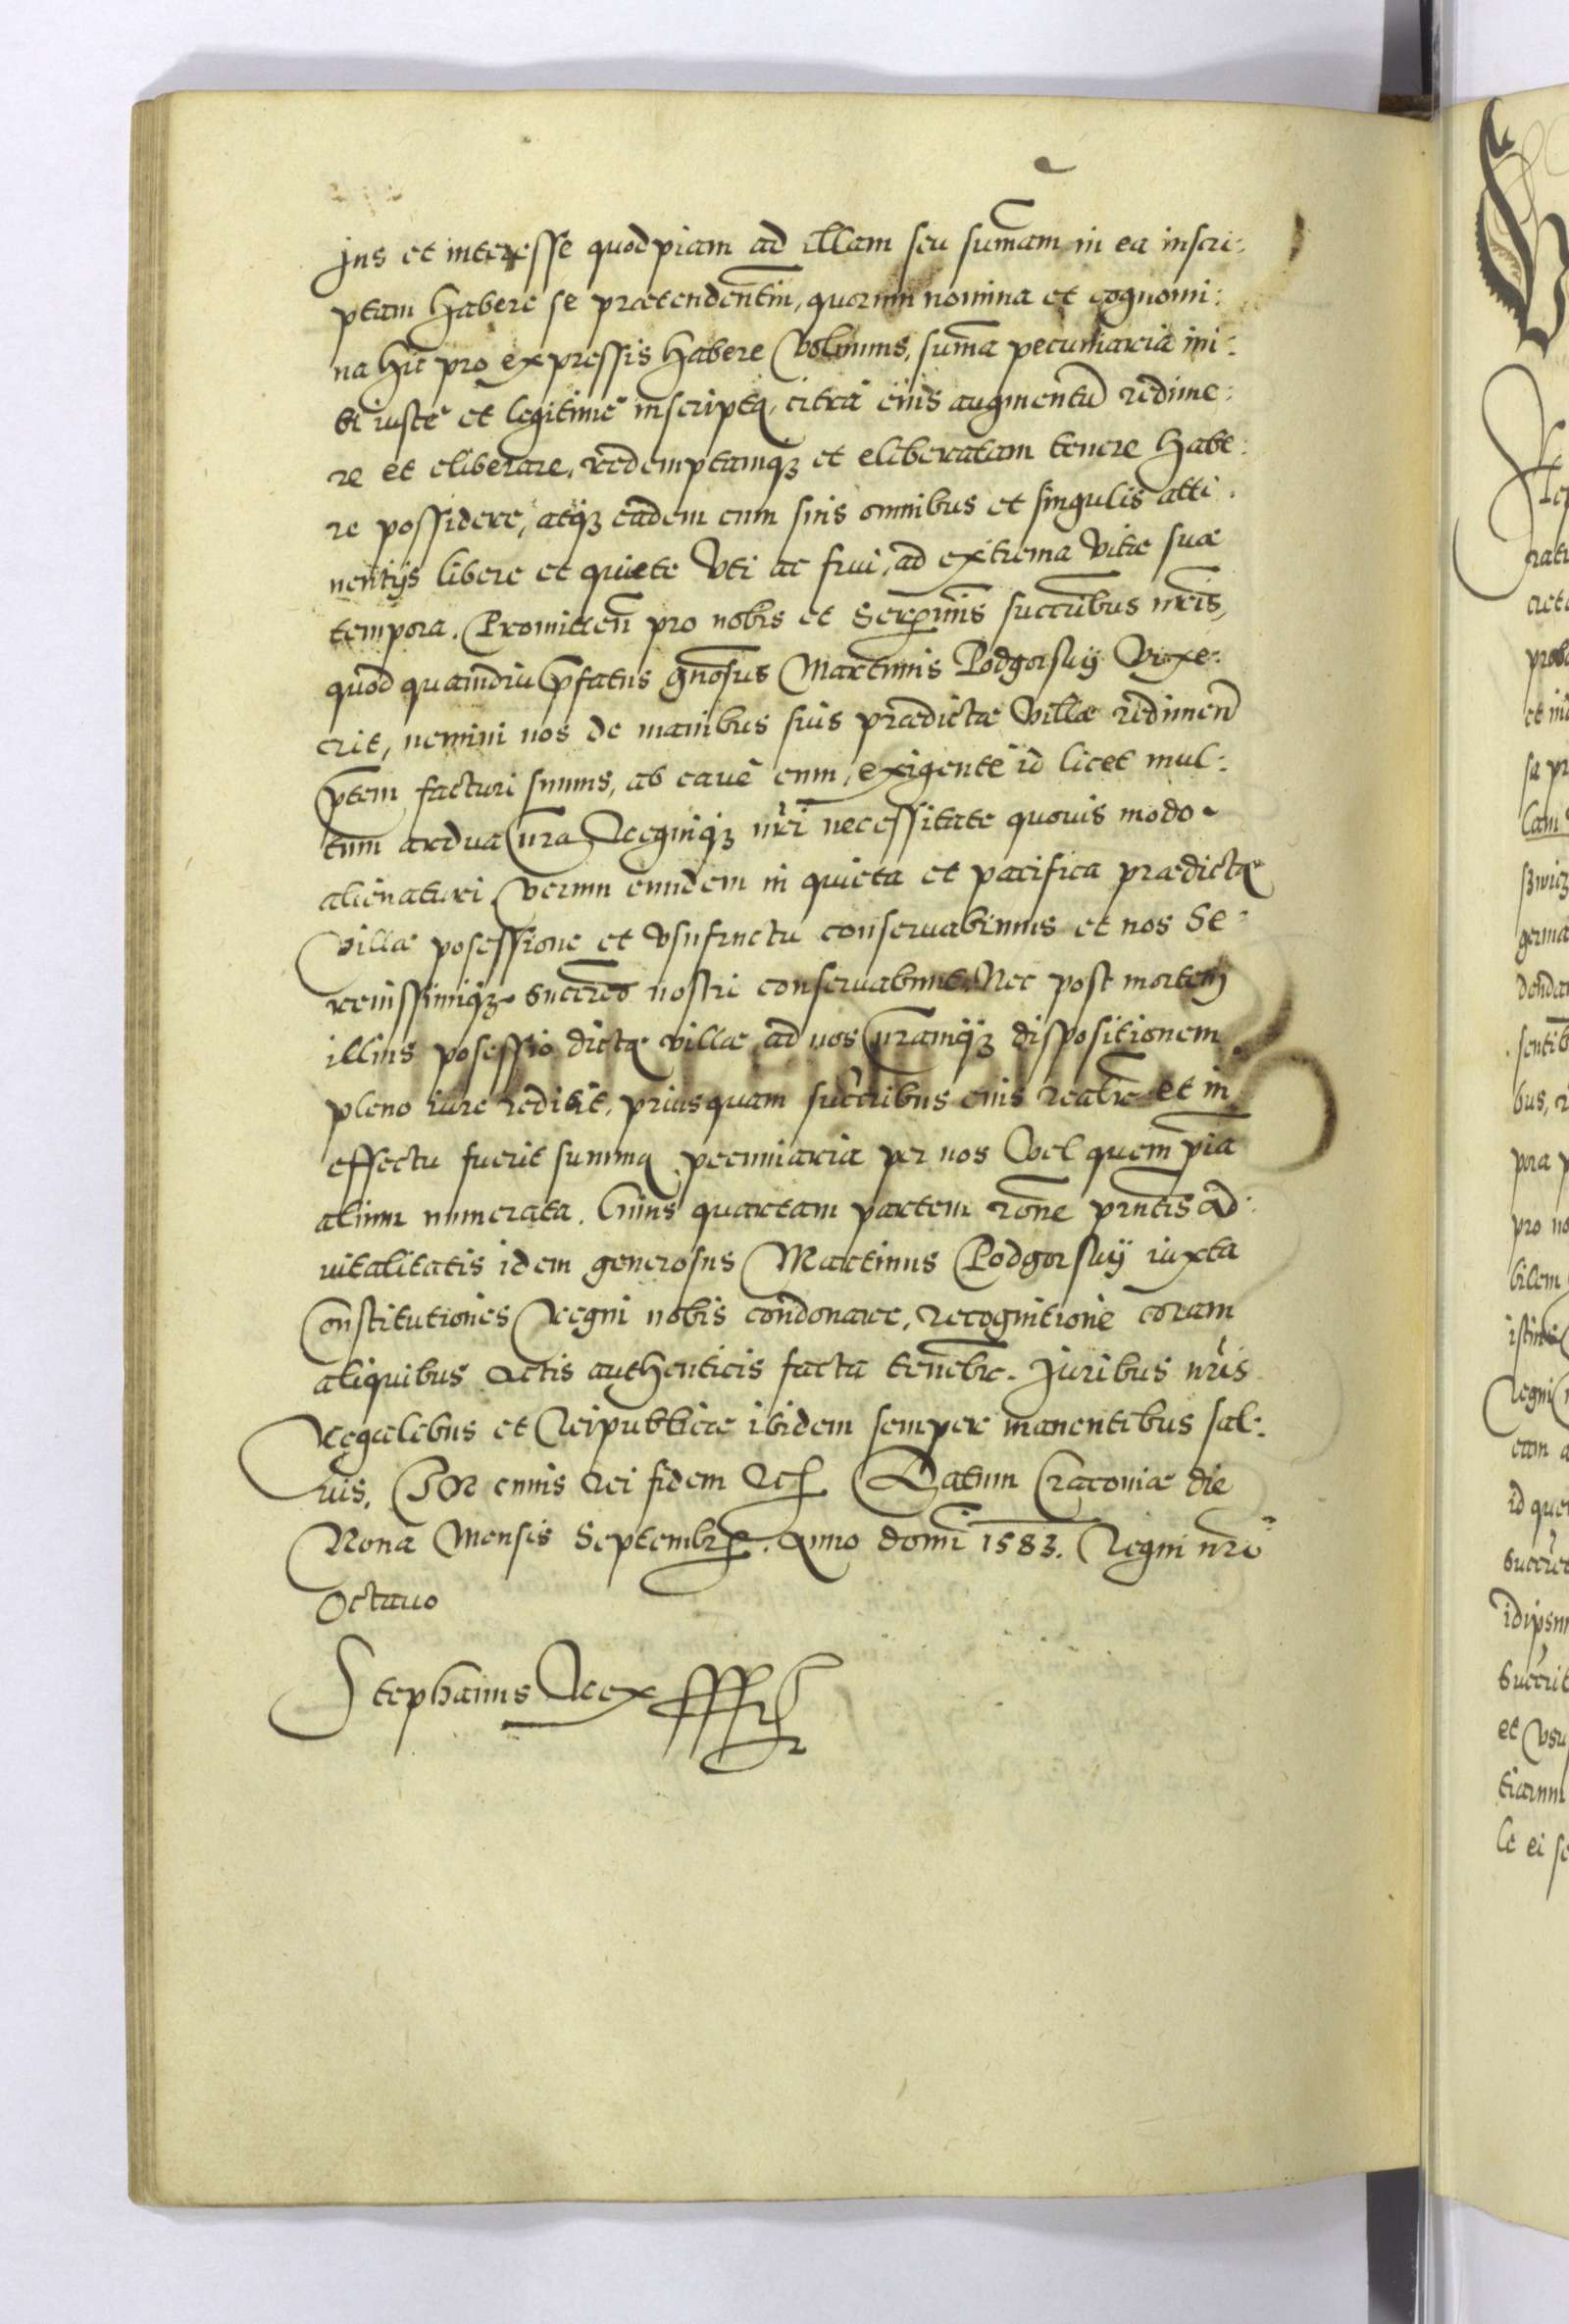 jus et interesse quodpiam ad illam seu sum̄am in ea inscri:
ptam habere se prætendentiū, quorum nomina et cognomi:
na hic pro expressis habere Volumus, sum̄a pecuniaria ini:
bi iustè et legitimè inscripta, citrà eius augmentū redime:
re et eliberare, redemptamqꝫ et eliberatam tenere habe:
re possidere, atqꝫ eâdem cum suis omnibus et singulis atti:
nentijs libere et quiete Vti ac frui, ad extrema Vitæ suæ
tempora. Promitten̄ pro nobis et Ser̄mis succribus n̄ris,
quod quamdiu p̄fatus gn̄osus Martinus Podgorskij Vixe:
rit, nemini nos de manibus suis prædictæ Villæ redimen̄
p̄tem facturi sumus, ab eaue eum, exigente id licet mul:
tum ardua n̄ra Regniqꝫ n̄ri necessitate quouis modo
alienaturi. Verum eundem in quieta et pacifica prædictæ
Villæ possessione et vsufructu conseruabimus et nos Se:
renissimiqꝫ succres̄ nostri conseruabunt. Nec post mortem
illius posessio dictæ villæ ad nos n̄ramqꝫ dispositionem
pleno iure redibit, priusquam succribus eius realr̄ et in
effectu fuerit summa pecuniaria per nos Vel quempiā
alium numerata. Cuius quartam partem rōne pr̄ntis ad:
uitalitatis idem generosus Martinus Podgorskij iuxta
Constitutiones Regni nobis condonare, recognitione coram
aliquibus Actis authenticis facta tenebr̄. Juribus n̄ris
Regalebus et Reipublicæ ibidem semper manentibus sal:
uis. In cuius rei fidem Etc Datum Cracoviæ die
Nona Mensis Septembrꝭ. Anno domī 1583. Regni nr̄o
Octauo
Stephanus Rex